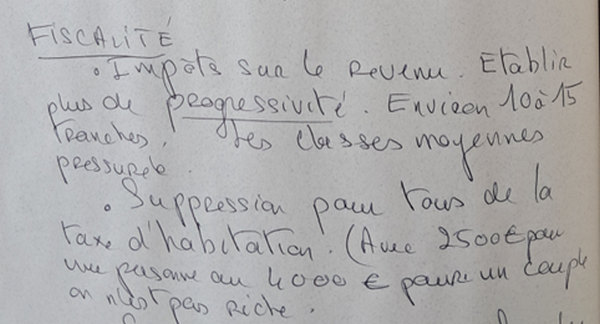 FISCALITÉ
• Impôts sur le revenu. Etablir
plus de progressivité. Environ 10 à 15
tranches. Les classes moyennes
pressurée.
• Suppression pour tous de la
taxe d'habitation. (Avec 2500€ pour
une personne ou 4000 € pour un couple
on n'est pas riche.